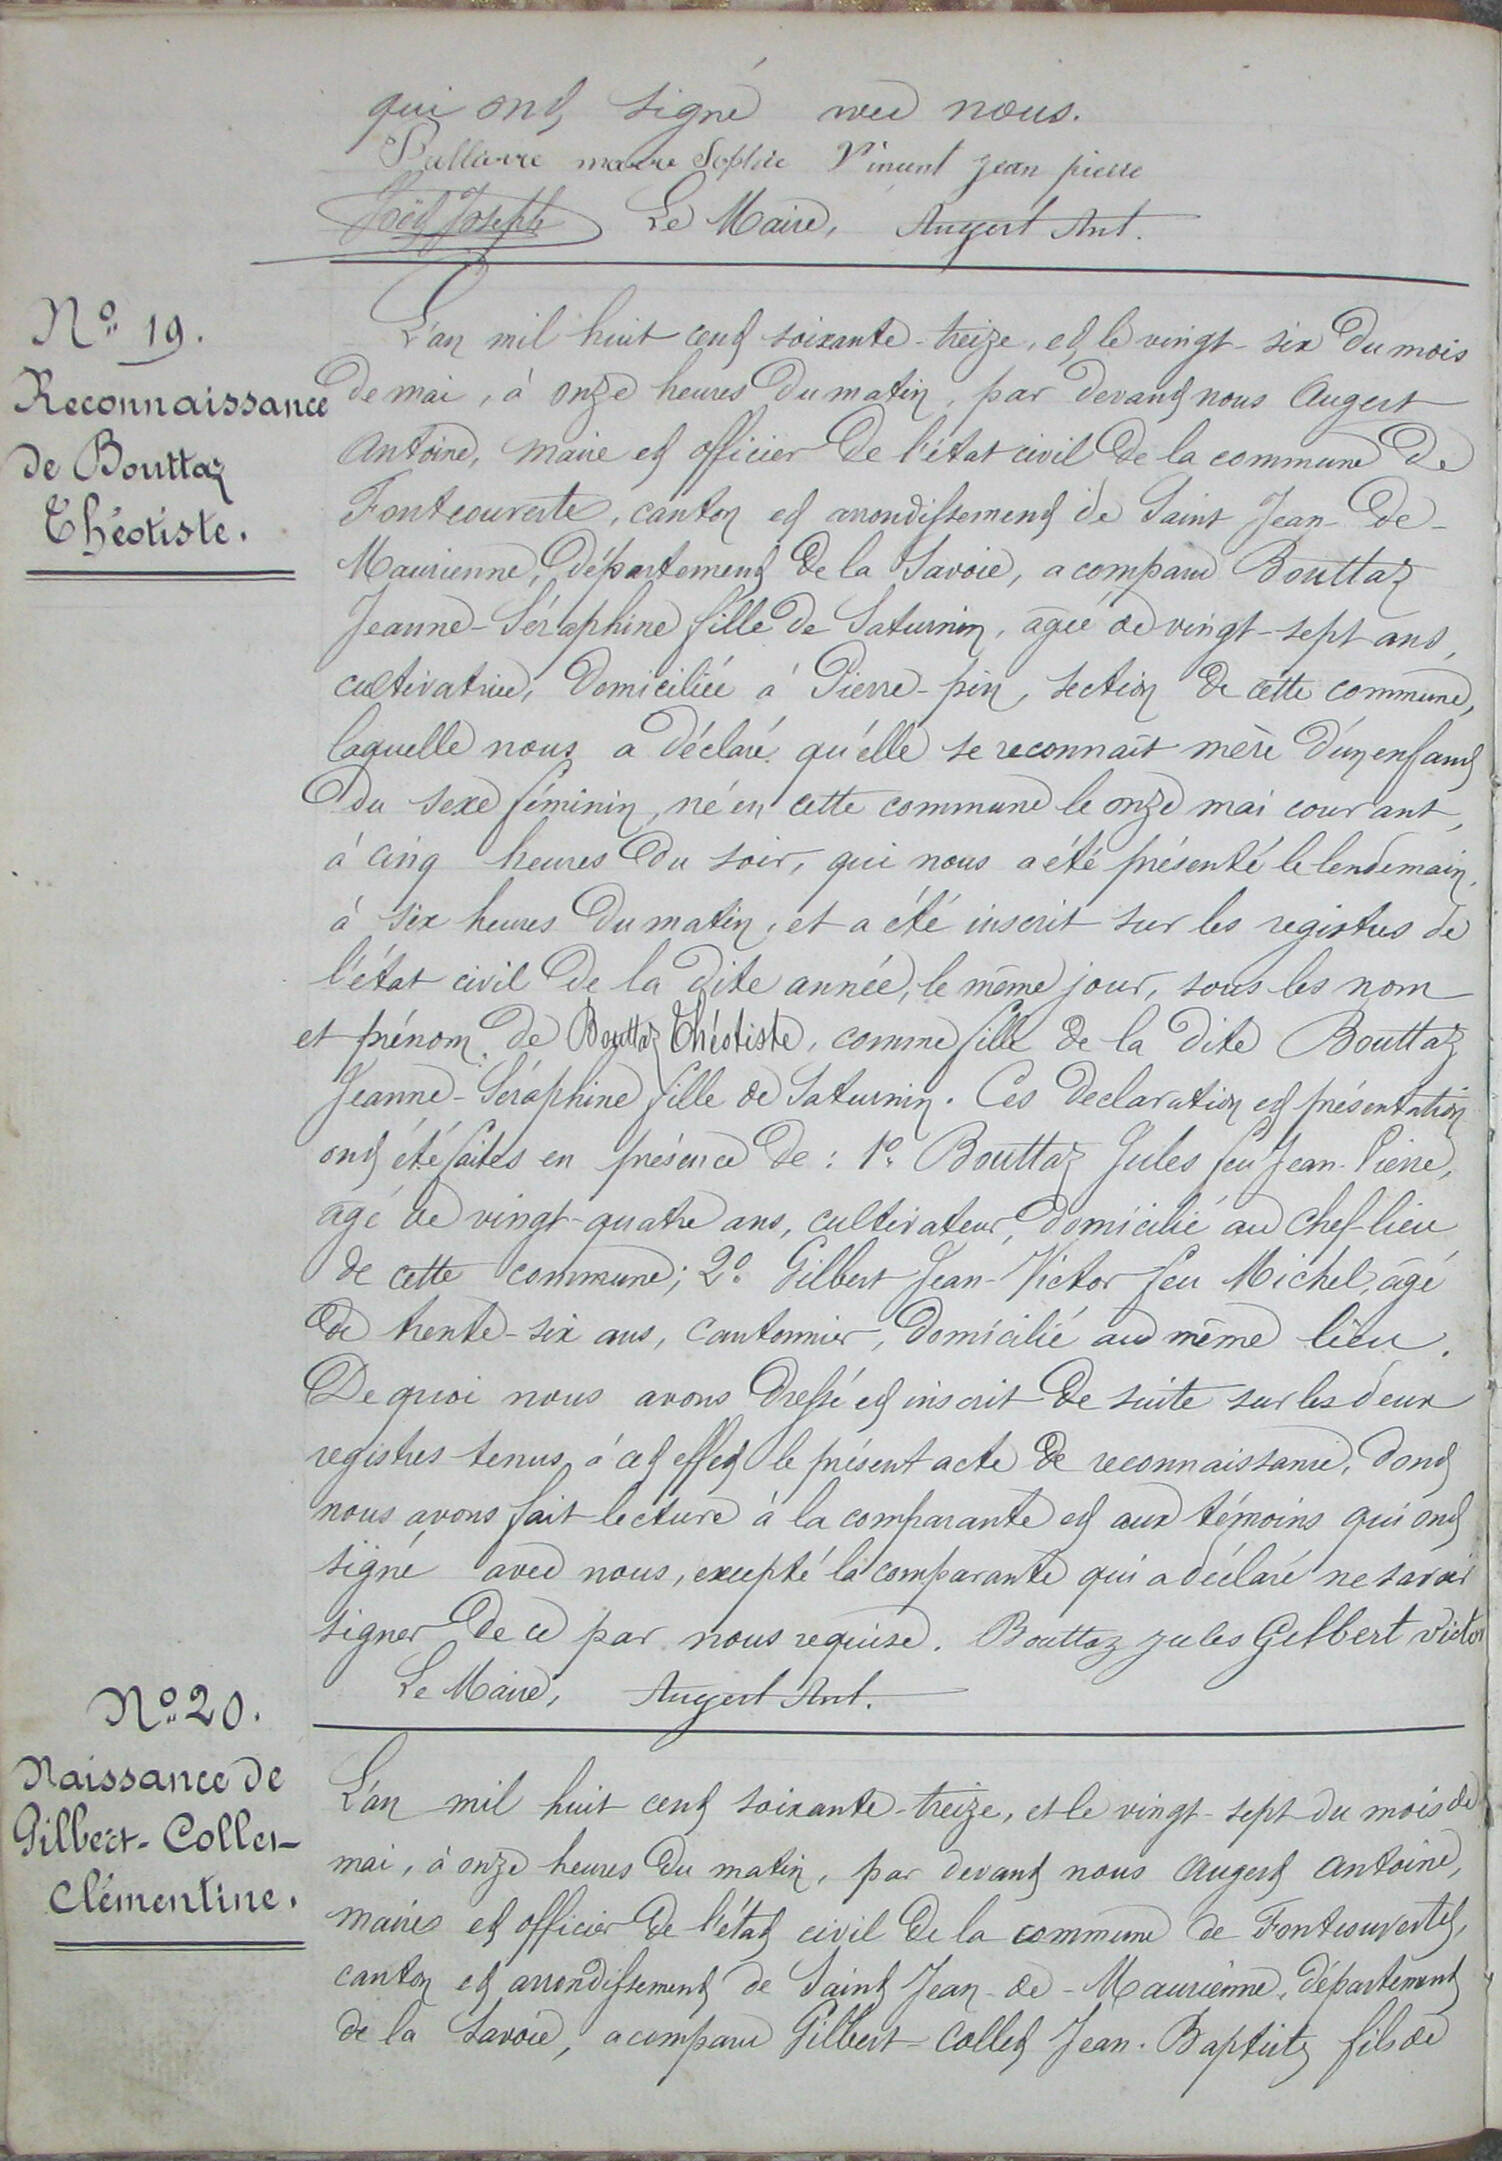 qui ont signé avec nous.
marie Sophie Vincent jean pierre
Joseph Le Maire, Augert Ant.
N° 19.
Reconnaissance
de Bouttaz
Théotiste.
L'an mil huit cent soixante-treize, et le vingt-six du mois
de mai, à onze heures du matin, par devant nous Augert
Antoine, maire et officier de l'état civil de la commune de
Fontcouverte, canton et arrondissement de Saint Jean-de-
Maurienne, département de la Savoie, a comparu Bouttaz
Jeanne-Séraphine fille de Saturnin, agée de vingt-sept ans,
cultivatrice, domiciliée à Pierre-pin, section de cette commune,
laquelle nous a déclaré qu'elle se reconnaît mère d'un enfant
du sexe féminin, né en cette commune le onze mai courant,
à cinq heures du soir, qui nous a été présenté le lendemain,
à six heures du matin, et a été inscrit sur les registres de
l'état civil de la dite année, le même jour, sous les nom
et prénom de Bouttaz Théotiste, comme fille de la dite Bouttaz
Jeanne-Séraphine fille de Saturnin. Ces declaration et présentation
ont été faites en présence de : 1° Bouttaz Jules feu Jean-Pierre,
agé de vingt-quatre ans, cultivateur, domicilié au chef-lieu
de cette commune; 2° Gilbert Jean-Victor feu Michel, âgé
de trente-six ans, cantonnier, domicilié au même lieu.
De quoi nous avons dressé et inscrit de suite sur les deux
registres tenus à cet effet le présent acte de reconnaissance, dont
nous avons fait lecture à la comparante et aux témoins qui ont
signé avec nous, excepté la comparante qui a déclaré ne savoir
signer de ce par nous requise. Bouttaz jules Gilbert victor
Le Maire, Augert Ant.
N° 20.
Naissance de
Gilbert-Collet-
Clémentine.
L'an mil huit cent soixante-treize, et le vingt-sept du mois de
mai, à onze heures du matin, par devant nous Augert Antoine,
maire et officier de l'état civil de la commune de Fontcouverte,
canton et arrondissement de Saint Jean-de-Maurienne, département
de la Savoie, a comparu Gilbert-Collet Jean-Baptiste fils de